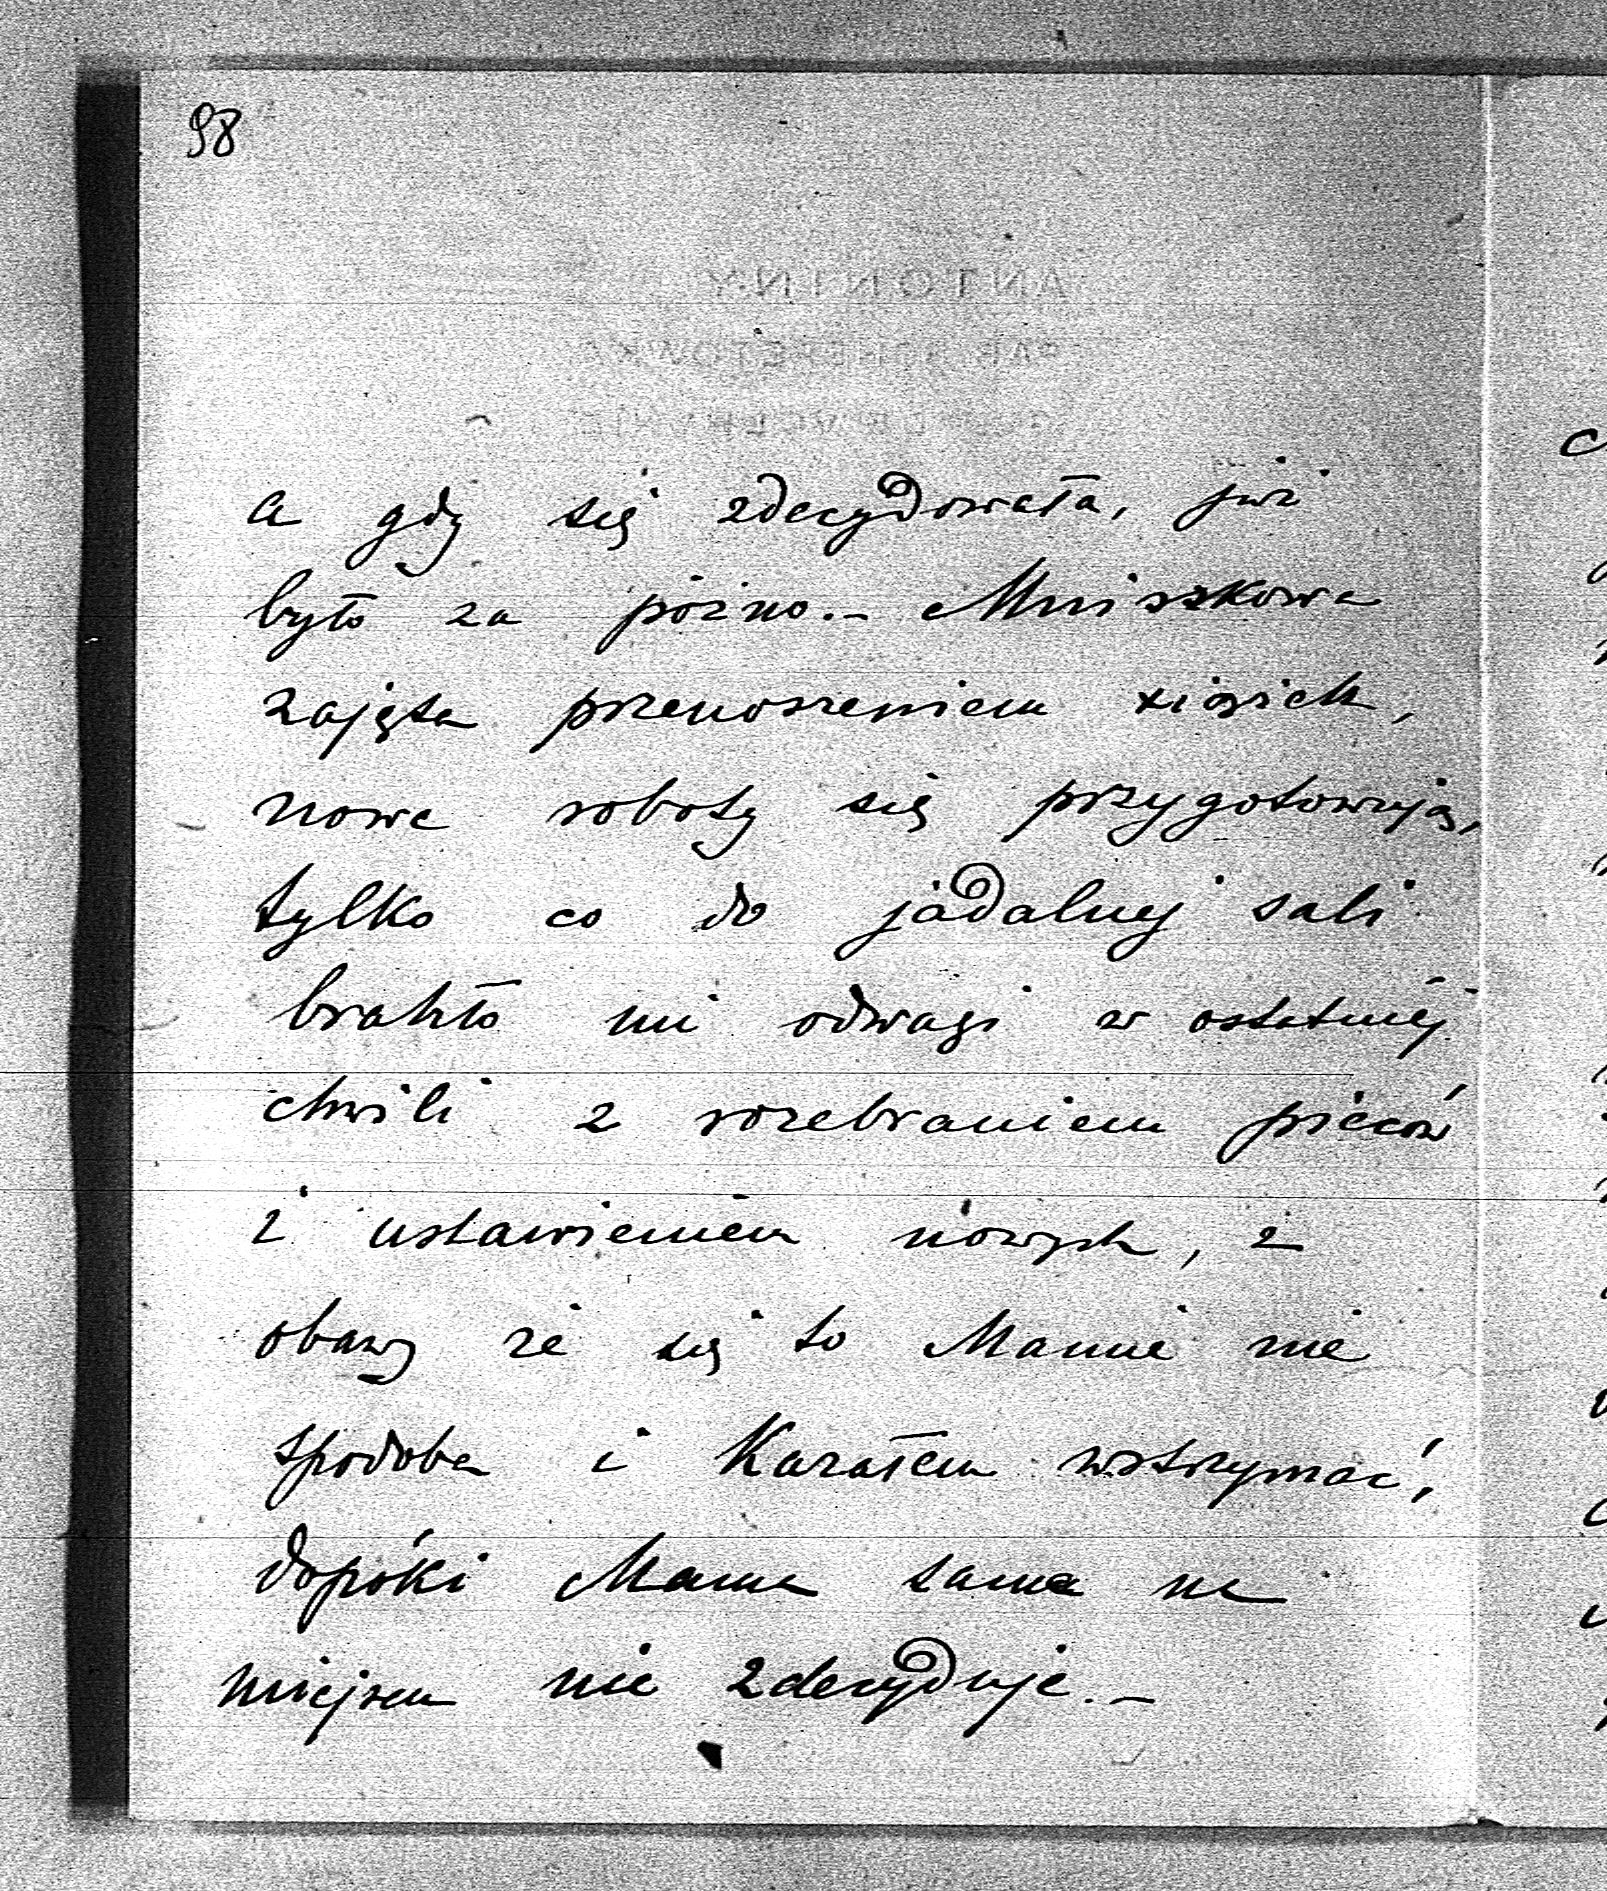 98
ANTONINY
PAR SCHEPETOWKA
a gdy się zdecydowała, już
było za późno. – Mniszkowa
zajęta przenoszeniem xiążek,
nowe roboty się przygotowują,
tylko co do jadalnej sali
brakło mi odwagi w ostatniéj
chwili z rozebraniem pieców
i ustawieniem nowych, z
obawy że się to Mamie nie
spodoba i Kazałem wstrzymać,
dopóki Mama sama na
miejscu nie zdecyduje. –